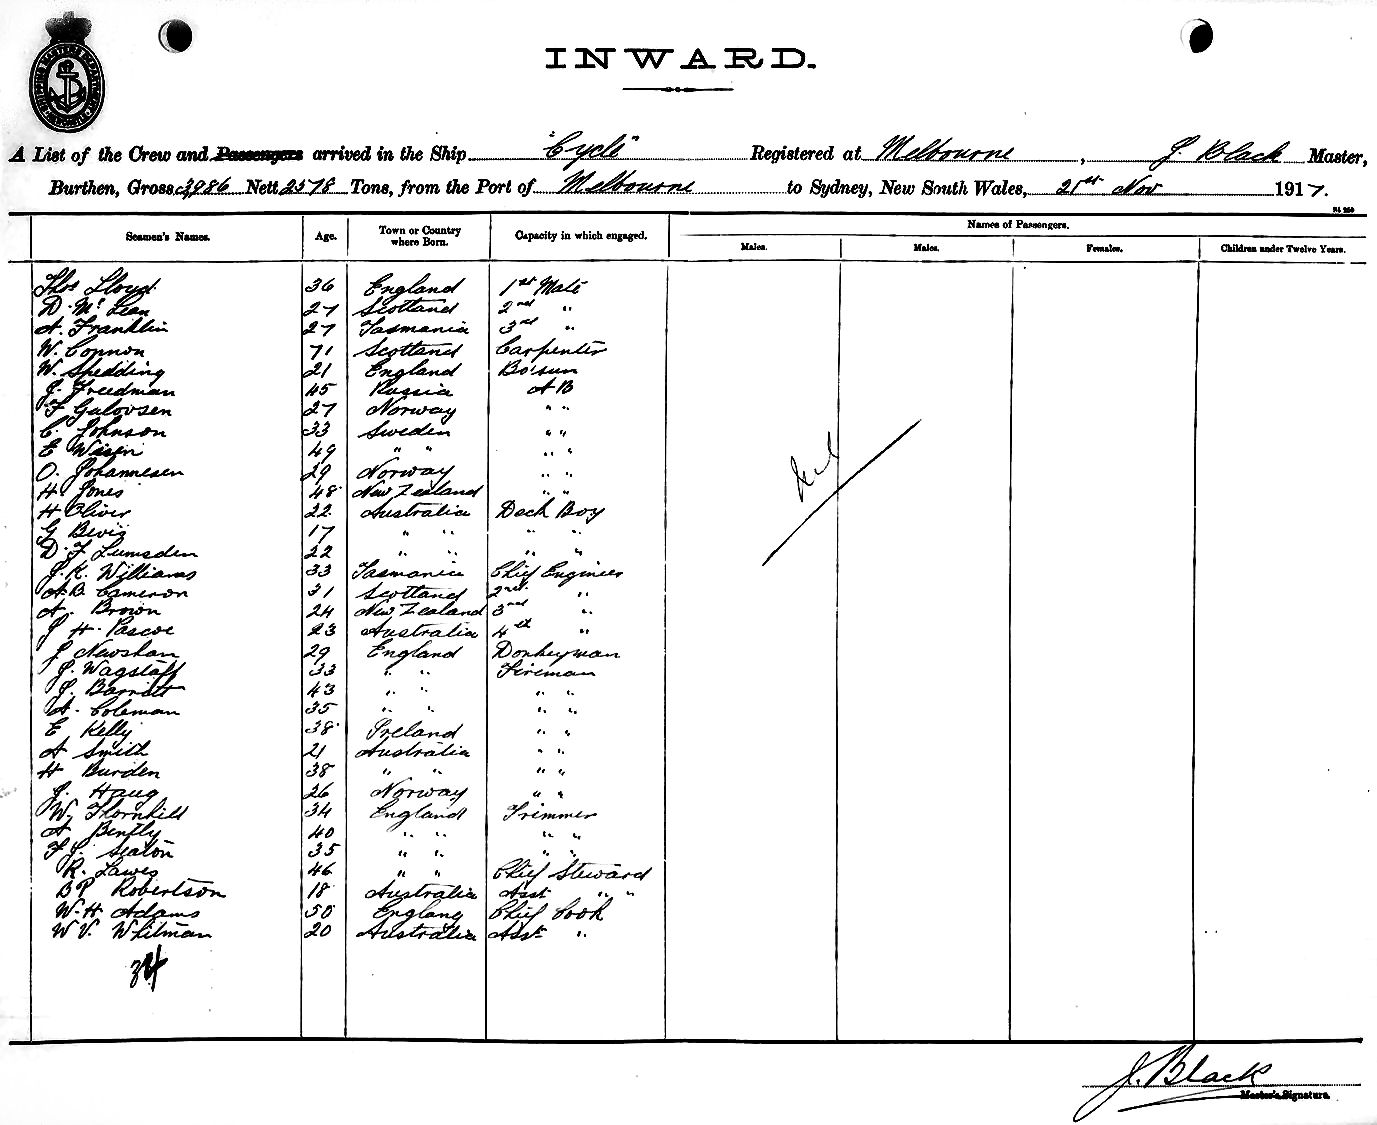 INWARD.
A List of the Crew and Passengers arrived in the Ship "Cycle" Registered at Melbourne, J. Black Master,
Burthen, Gross 3986 Nett 2578 Tons, from the Port of Melbourne to Sydney, New South Wales, 21st Nov 1917.
Seamen's Names. Age. Town or Country where Born. Capacity in which engaged. Names of Passengers.
Males. Males. Females. Children under Twelve Years.
Thos Lloyd 36 England 1st Mate
D. Mc Lean 27 Scotland 2nd "
A. Franklin 27 Tasmania 3rd "
W. Connon 71 Scotland Carpenter
W. Spedding 21 England Bo'sun
J. Freedman 45 Russia A B
F Gulovsen 27 Norway " "
C. Johnson 33 Sweden " "
E 49 " " " "
O. Johannesen 29 Norway " "
H. Jones 48 New Zealand " "
H Oliver 22 Australia Deck Boy
G Bevis 17 " " " "
D. F Lumsden 22 " " " "
J. K. Williams 33 Tasmania Chief Engineer
A B Cameron 31 Scotland 2nd "
A. Brown 24 New Zealand 3rd "
J H. Pascoe 23 Australia 4th "
J Newshan 29 England Donkeyman
J. Wagstaff 33 " " Fireman
J. Barratt 43 " " " "
A. Coleman 35 " " " "
E Kelly 38 Ireland " "
A Smith 21 Australia " "
H Burden 38 " " " "
J. Haug 26 Norway " "
W. Thornhill 34 England Trimmer
A Bently 40 " " " "
F J. Seaton 35 " " " "
R. Lawes 46 " " Chief Steward
B P Robertson 18 Australia Asst " "
W. H Adams 50 England Chief Cook
W V. Whitman 20 Australia Asst "
34
Nil
J. Black
Master's Signature.